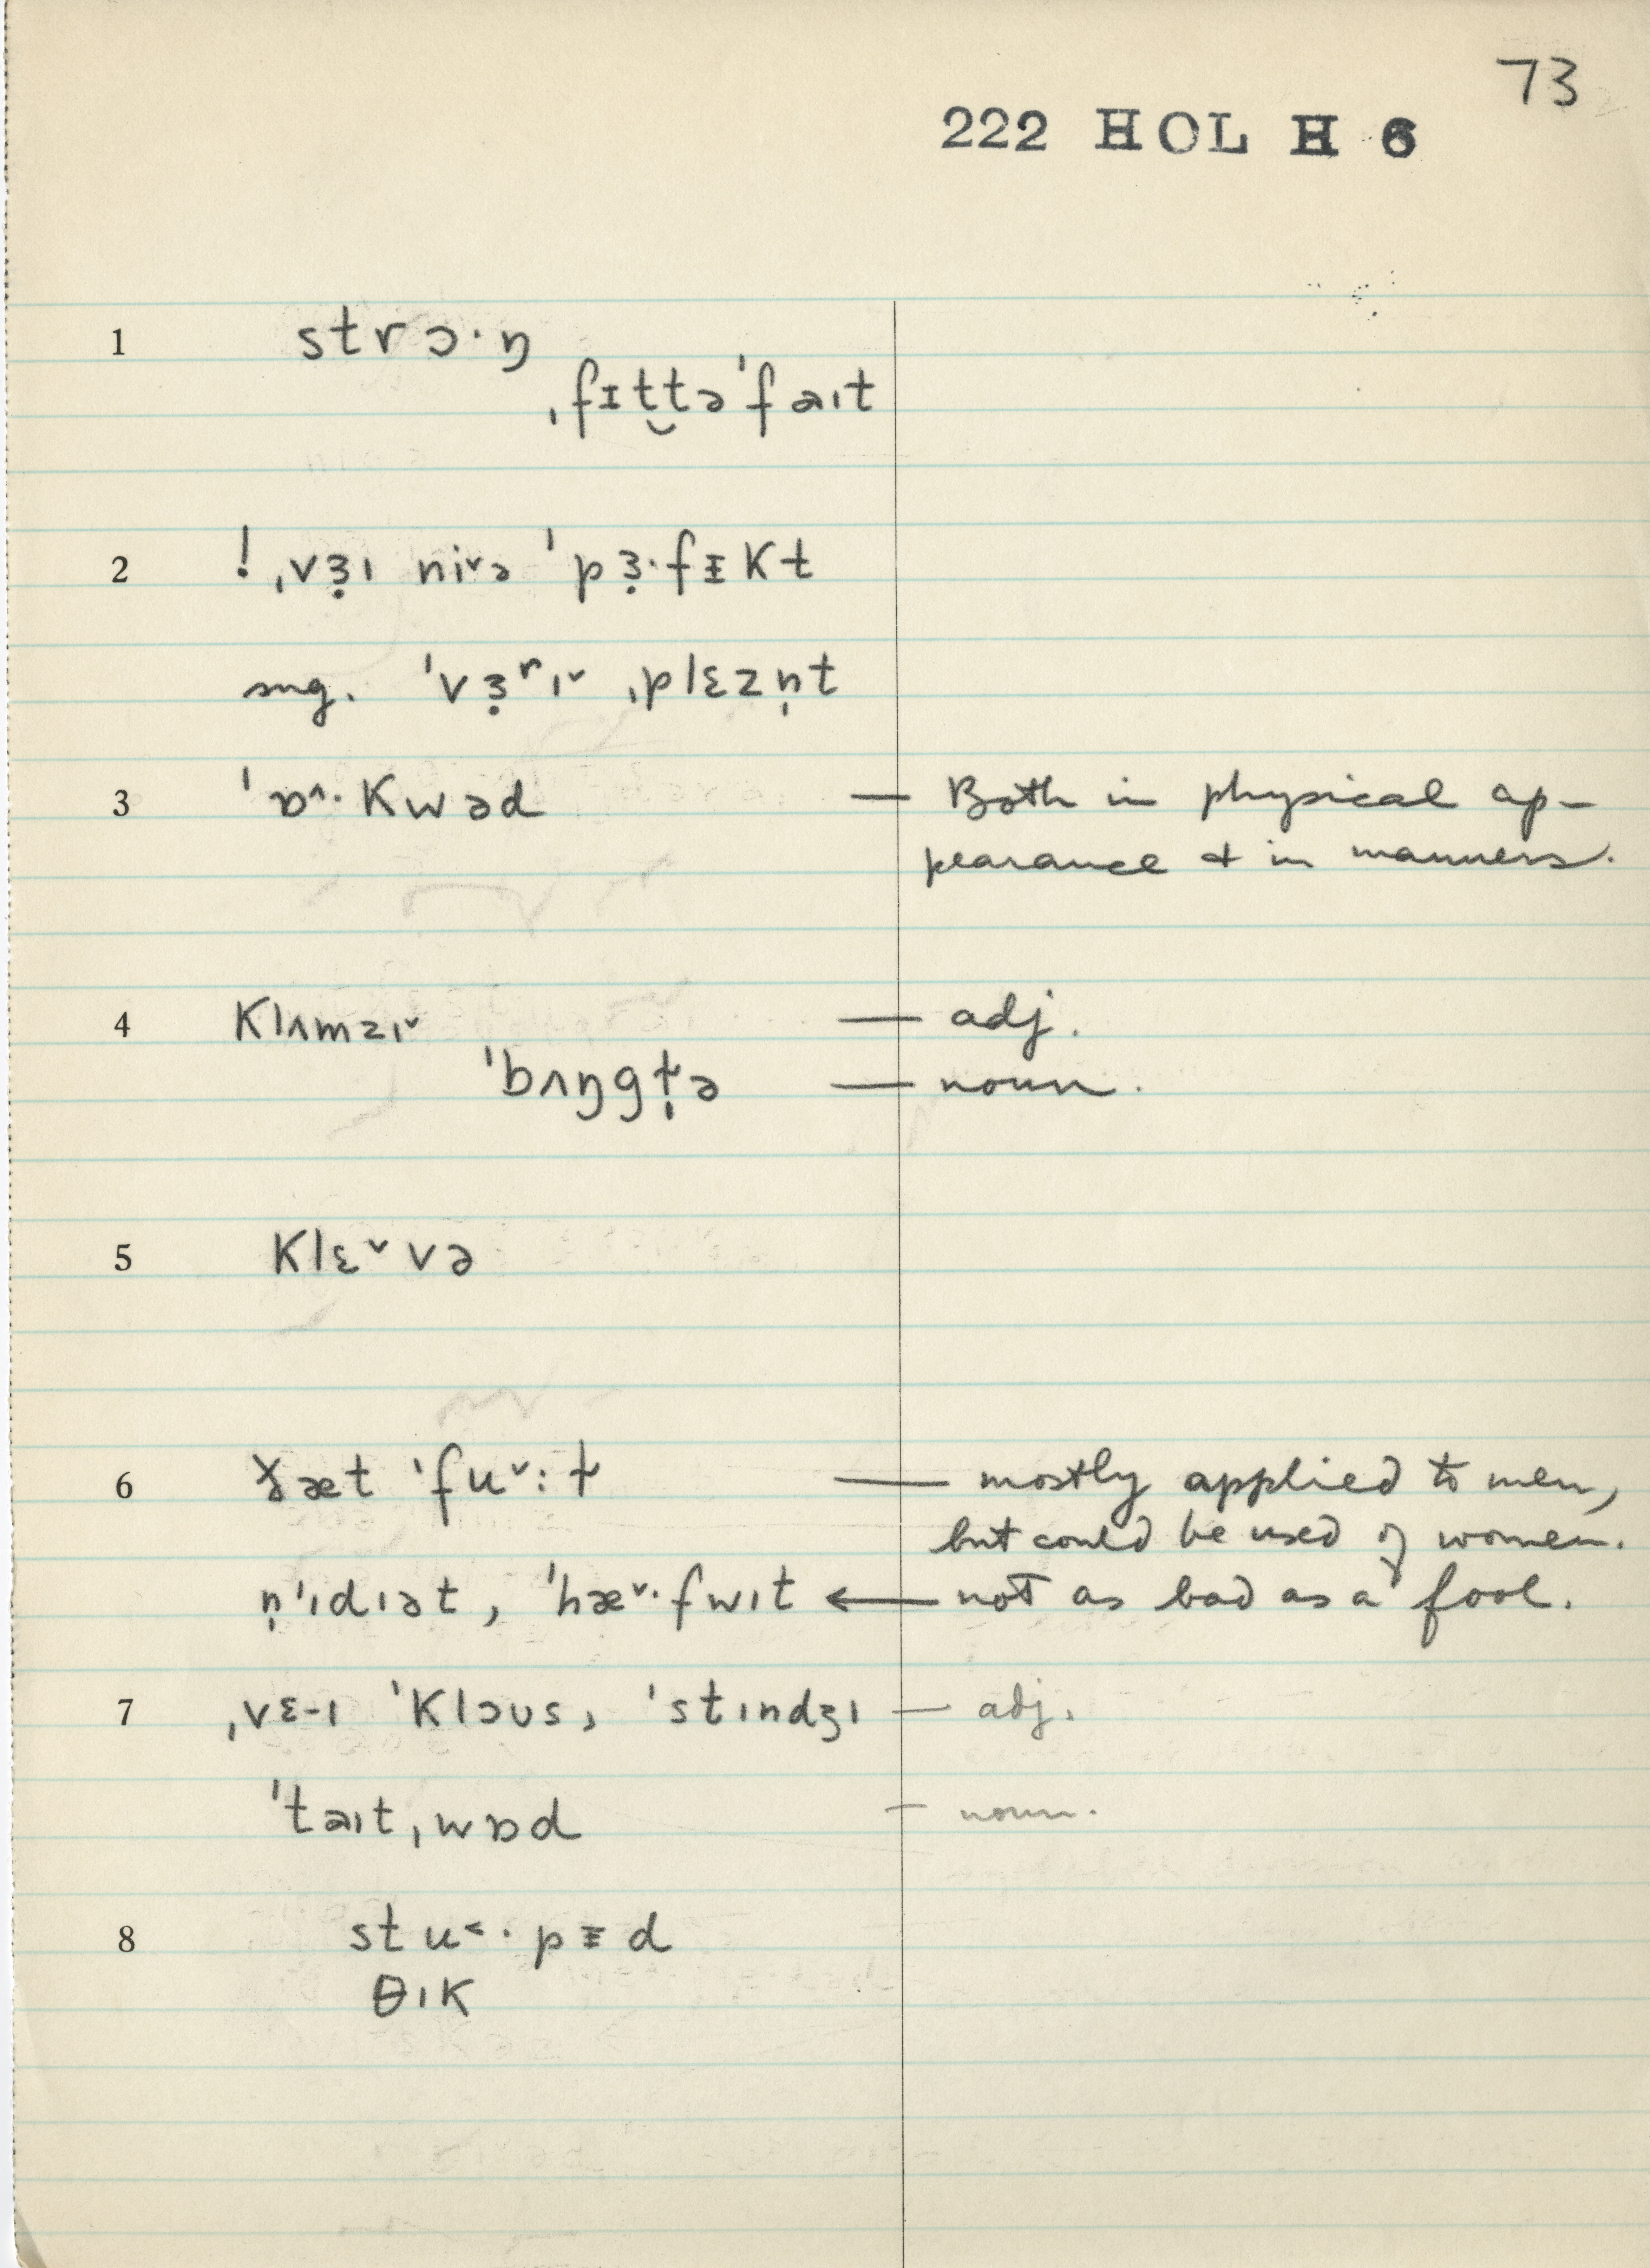 73
222 HOL H 6
1 strɔ·ŋ
ˌfɪt̮tə'faıt
2 ! ˌvɜ̣ı niᵛə 'pɜ̣·fᵻkt
sug. 'vɜ̣ʳıᵛ ˌplɛzn̩t
3 'ɒ^·kwəd — Both in physical ap-
pearance & in manners.
4 klʌmzıᵛ — adj.
'bʌŋgɫ̩ə — noun.
5 klɛᵛvə
6 ɫæt 'fuᵛ:ɫ — mostly applied to men,
but could be used of women.
n̩'ıdıət, 'hæᵛ·fwıt ← not as bad as a fool.
7 ˌvɛ-ı 'klɔʊs, 'stındʒı — adj.
'taıtˌwɒd — noun.
8 stu˂·pᵻd
θık